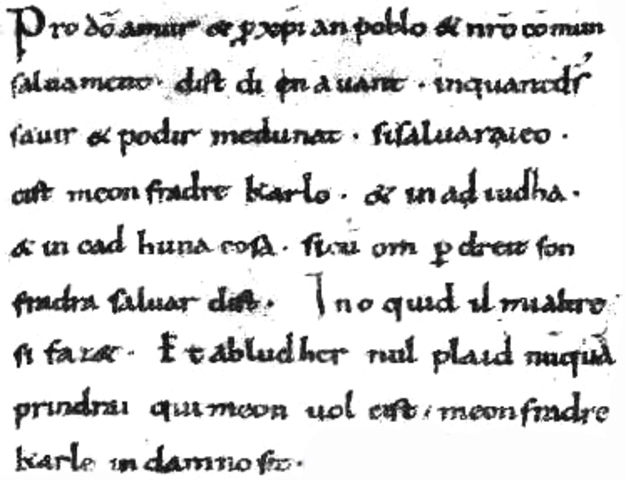 Pro dō amur & ꝑ xp̄i an poblo & nr̄o cōmun
saluament. dist di en auant. inquantd̄s
sauir & podir medunat. sisaluaraieo.
cist meon fradre karlo. & in ad iudha.
& in cad huna cosa. sicū om ꝑ dreit son
fradra saluar dist. Ino quid il mialtre
si faz&. Et abludher nul plaid nūquā
prindrai qui meon uol cist, meonfradre
karle in damno sit.